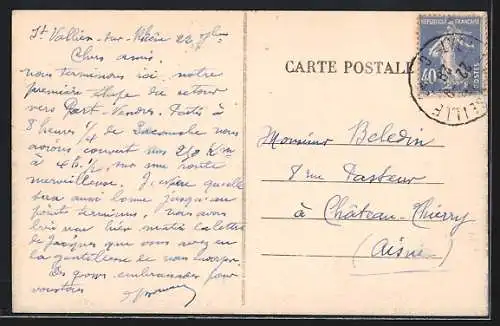 St Vallier-sur-Rhône 22
Chers amis.
nous terminons ici notre
première étape du retour
vers Port-Vendres. Partis à
8 heures 1/4 de nous
avons couvert nos 2 0 Km
à 4h 1/2, sur une route
merveilleuse. J'espère qu'elle
sera aussi bonne jusqu'au
point terminus. Nous avons
hier matin la lettre
de Jacques que vous avez eu
la gentillesse de nous
De gros embrassades pour
vous tous
CARTE POSTALE
REPUBLIQUE FRANÇAISE
40
POSTES
Monsieur Beledin
8 rue Pasteur
à Château-Thierry
(Aisne)